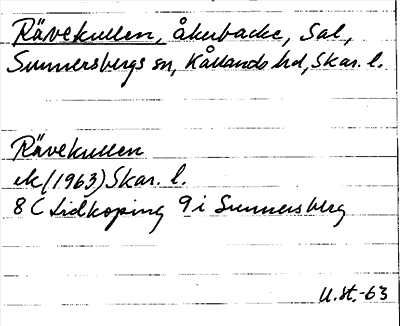 Rävekullen, åkerbacke, Sal,
Sunnersbergs sn, Kållands hd, Skar. l.
Rävekullen
ek (1963) Skar. l.
8 C Lidköping 9 i Sunnersberg
U.st.-63